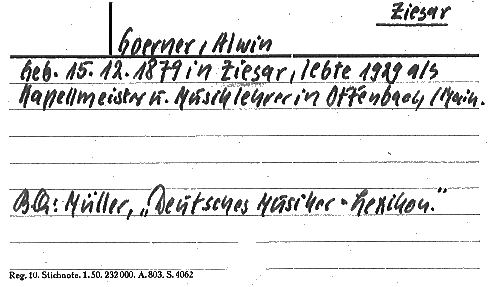 Ziesar
Goerner, Alwin
Geb. 15.12.1879 in Ziesar, lebte 1929 als
Kapellmeister u. Musiklehrer in Offenbach/Main.
B.Qu: Müller, „Deutsches Musiker-Lexikon."
Reg. 10. Stichnote. 1. 50. 232000. A. 803. S. 4062